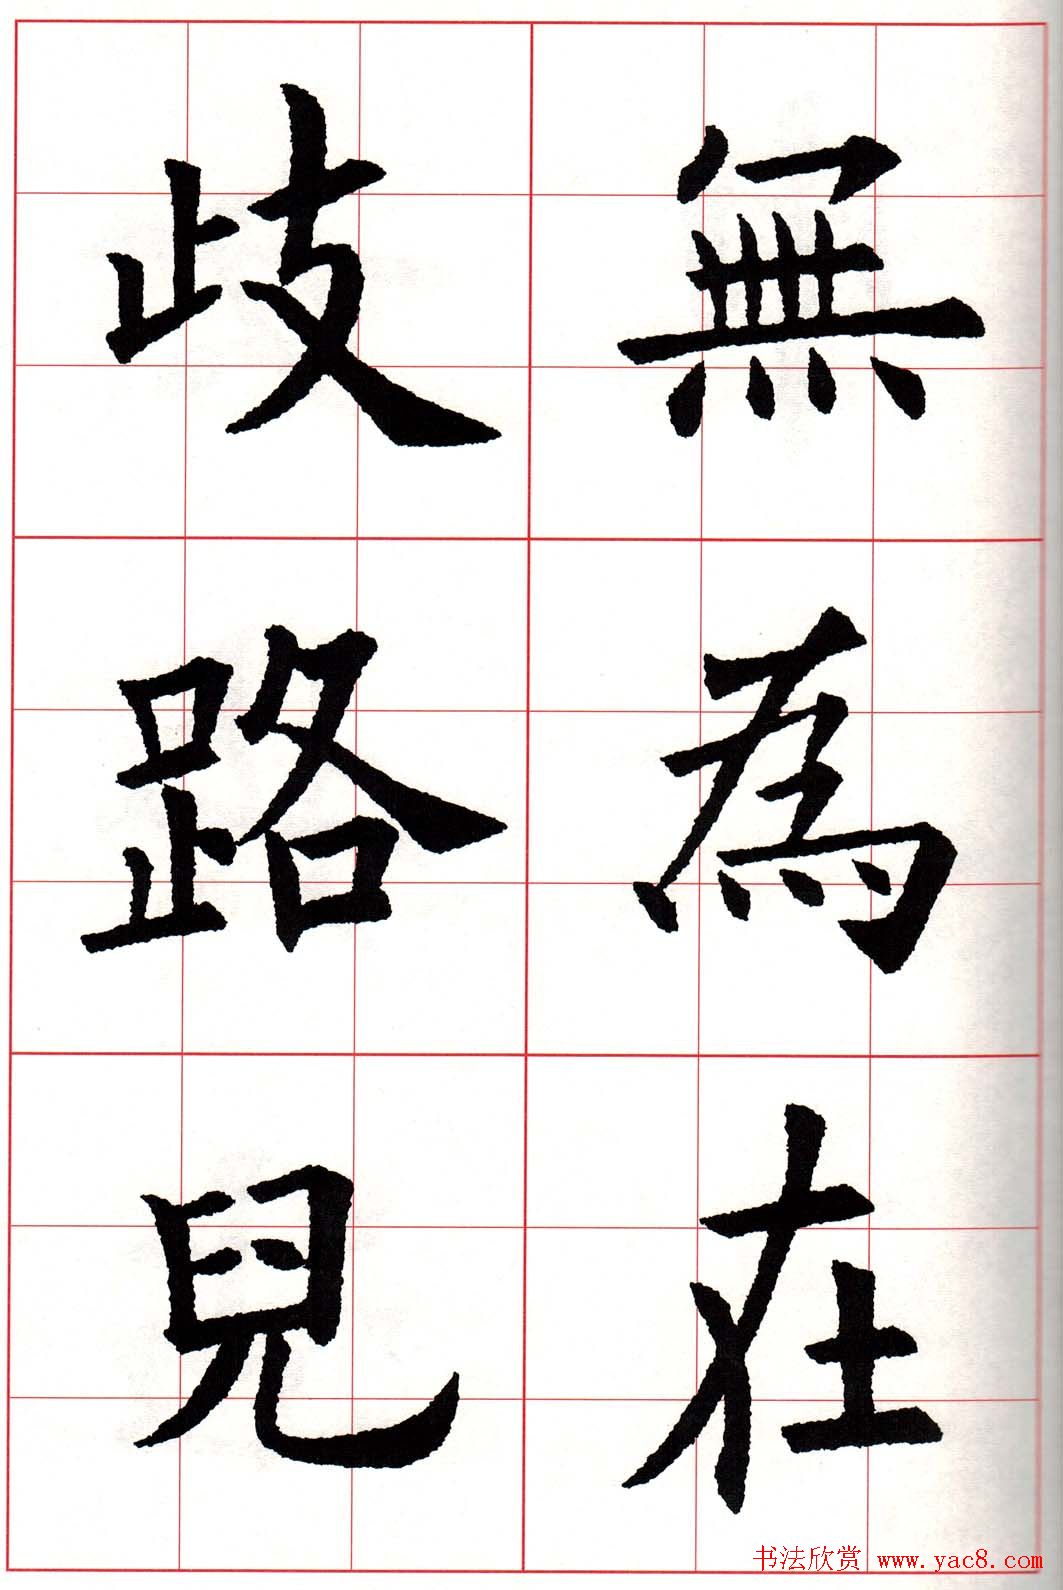 無為在
歧路兒
书法欣赏 www.yac8.com